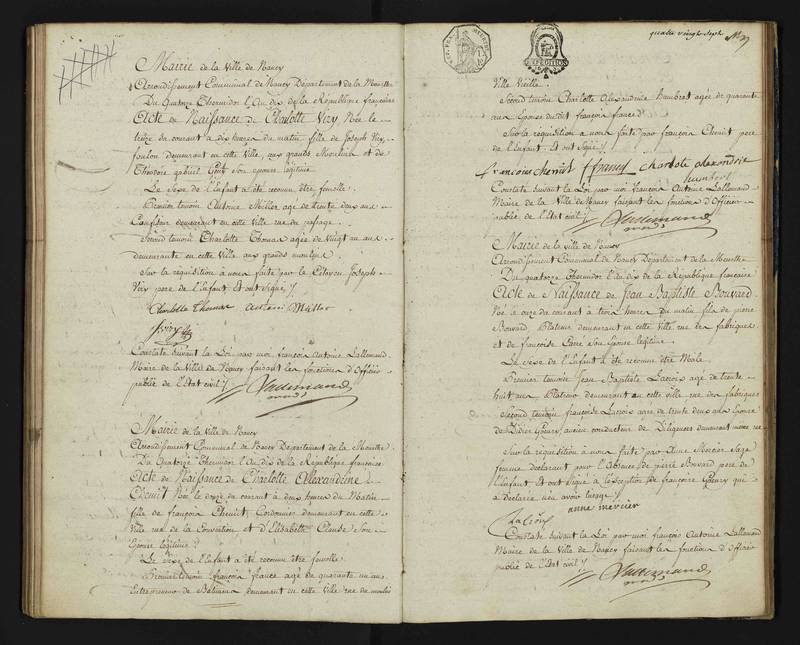 Mairie de la Ville de Nancy
Arrondissement Communal de Nancy Département de la Meurthe
Du Quatorze Thermidor l'An dix de la République française
Acte de Naissance de Charlotte Viry Née le
treize du courant à dix heures du matin fille de Joseph Viry,
foulon demeurant en cette Ville, aux grands Moulins et de
Théodore gabriel son épouse légitime
Le Sexe de l'Enfant a été reconnu être femelle.
Premier témoin Antoine Miller agé de trente deux ans
demeurant en cette Ville rue du passage.
Second témoin Charlotte Thomas agée de Vingt un ans
demeurante en cette Ville aux grands moulins.
Sur la réquisition à nous faite par le Citoyen Joseph
Viry pere de l'Enfant et ont signé /.
Charlotte Thomas antoine Miller
J Viry
Constaté suivant la Loi par moi françois Antoine Lallemand
Maire de la Ville de Nancy faisant les fonctions d'Officier
public de l'Etat civil /.
Lallemand
Mairie de la Ville de Nancy
Arrondissement Communal de Nancy Département de la Meurthe.
Du Quatorze Thermidor l'An dix de la République française
Acte de Naissance de Charlotte Alexandrine
Chenüt Née le douze du courant à deux heures du Matin
fille de françois Chenüt, Cordonnier demeurant en cette
Ville rue de la Convention et d'Elisabeth Claude Son
Epouse légitime
Le Sexe de l'Enfant a été reconnu être femelle
Premier témoin françois france agé de quarante un ans
Entrepreneur de Batimens demeurant en cette Ville rue du moulin
quatre vingt sept
EXPEDITION
Ville Vieille.
Second témoin Charlotte Alexandrine humbert agée de quarante
ans Epouse dudit françois france
Sur la réquisition à nous faite par françois Chenüt pere
de l'Enfant et ont signé /.
francois chenüt f france charlote alexandrie
humbert
Constaté suivant la Loi par moi françois Antoine Lallemand
Maire de la Ville de Nancy faisant les fonctions d'Officier
public de l'Etat civil /.
Lallemand
Mairie de la Ville de Nancy
Arrondissement Communal de Nancy Département de la Meurthe
Du Quatorze Thermidor l'An dix de la République française
Acte de Naissance de Jean Baptiste Bouvard
Né le onze du courant à trois heures du matin fils de pierre
Bouvard Platineur demeurant en cette ville rue des fabriques
et de françoise son Epouse légitime.
Le Sexe de l'Enfant a été reconnu être Mâle.
Premier témoin Jean Baptiste Lacroix agé de trente
huit ans Platineur demeurant en cette ville rue des fabriques
Second témoin françoise Lacroix agée de trente deux ans Epouse
de Didier Goeury, ancien conducteur de Diligences demeurant même rue
Sur la réquisition à nous faite par Anne Mercier Sage
femme déclarant pour l'absence de pierre Bouvard pere de
l'Enfant et ont signé à l'exception de françoise Goeury qui
a déclaré n'en avoir l'usage /.
anne mercier
Lacroix
Constaté suivant la Loi par moi françois Antoine Lallemand
Maire de la Ville de Nancy faisant les fonctions d'Officier
public de l'Etat civil /.
Lallemand